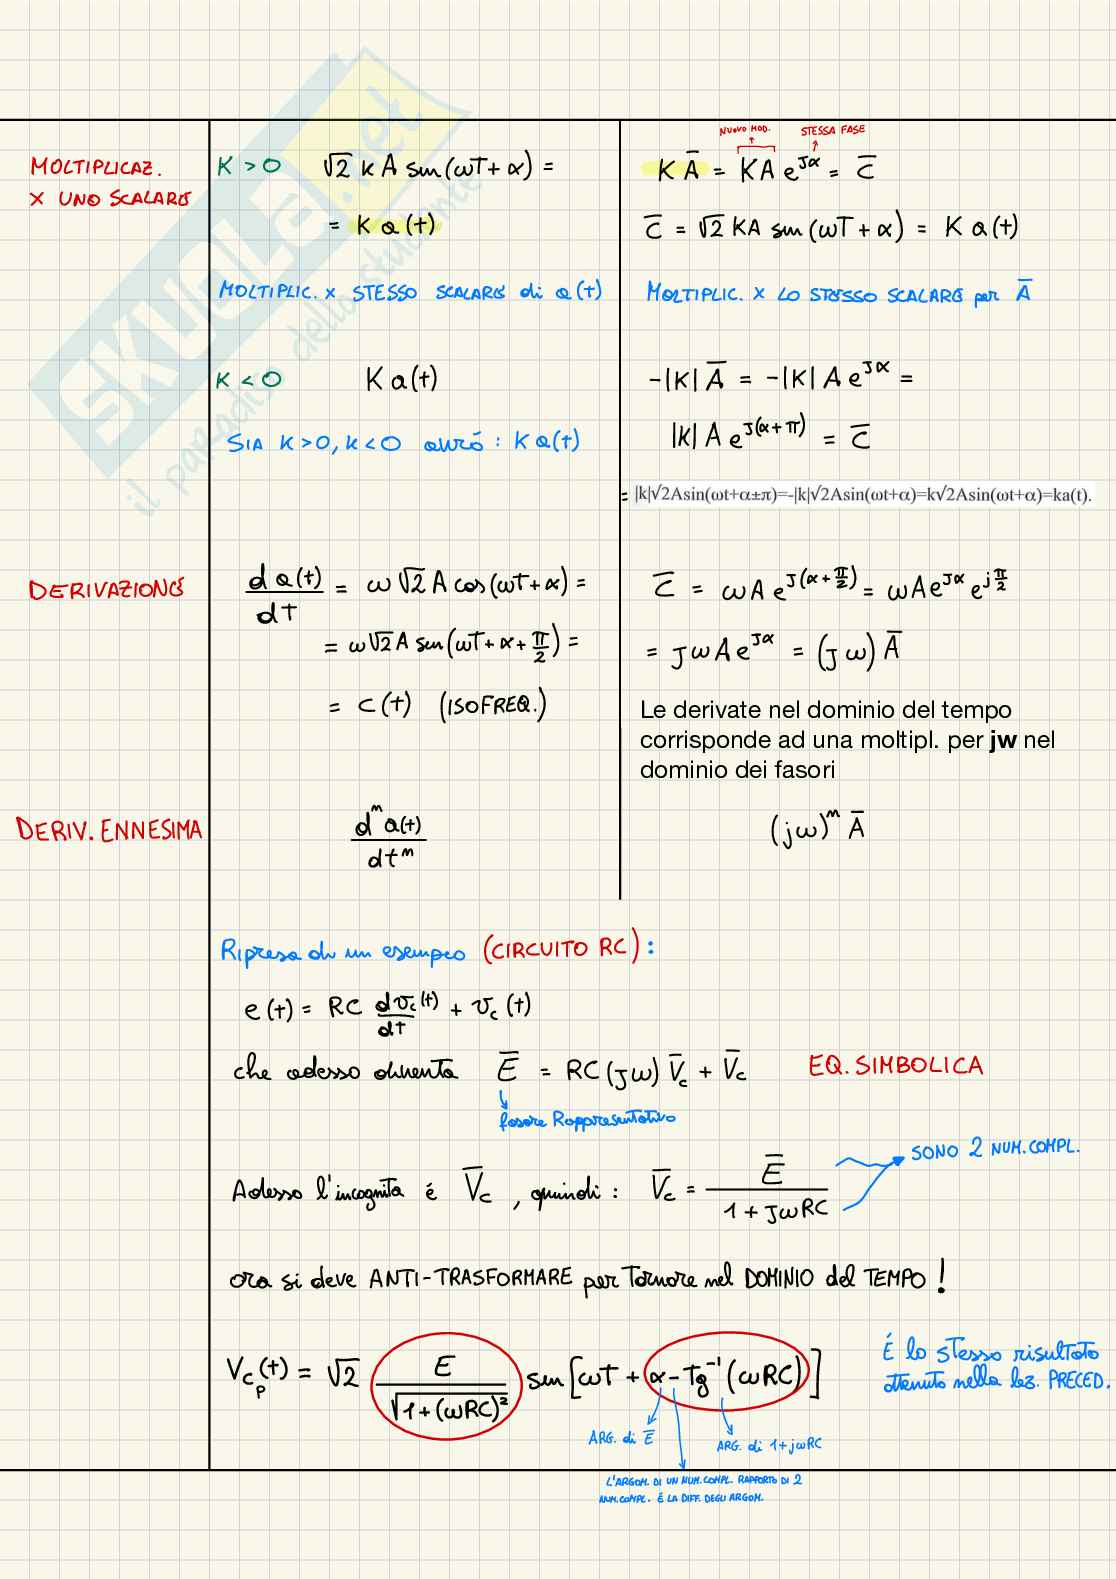 SKUOLA.net
il paradiso dello studente
MOLTIPLICAZ.
X UNO SCALARE
K > 0 √2 k A sin(ωT + α) =
= K a(t)
MOLTIPLIC. X STESSO SCALARE di a(t)
NUOVO MOD. STESSA FASE
K A̅ = KA e^{Jα} = C̅
C̅ = √2 KA sin(ωT + α) = K a(t)
MOLTIPLIC. X LO STESSO SCALARE per A̅
K < 0 K a(t)
SIA K>0, K<0 avrò : K a(t)
-|K| A̅ = -|K| A e^{Jα} =
|K| A e^{J(α+π)} = C̅
= |k|√2Asin(ωt+α±π)=-|k|√2Asin(ωt+α)=k√2Asin(ωt+α)=ka(t).
DERIVAZIONE
d a(t)/dt = ω √2 A cos(ωT + α) =
= ω√2 A sin(ωT + α + π/2) =
= c(t) (ISOFREQ.)
C̅ = ωA e^{J(α+π/2)} = ωA e^{Jα} e^{jπ/2}
= JωA e^{Jα} = (Jω) A̅
Le derivate nel dominio del tempo
corrisponde ad una moltipl. per jw nel
dominio dei fasori
DERIV. ENNESIMA
d^n a(t)/dt^n
(jω)^n A̅
Ripresa di un esempio (CIRCUITO RC) :
e(t) = RC dv_c(t)/dt + v_c(t)
che adesso diventa E̅ = RC (Jω) V̅_c + V̅_c EQ. SIMBOLICA
fasore Rappresentativo
Adesso l'incognita é V̅_c , quindi : V̅_c = E̅/(1 + JωRC) SONO 2 NUM. COMPL.
ora si deve ANTI-TRASFORMARE per Tornare nel DOMINIO del TEMPO !
V_{Cp}(t) = √2 E/√(1+(ωRC)²) sin[ωT + α - Tg^{-1}(ωRC)]
É lo stesso risultato
ottenuto nella lez. PRECED.
ARG. di E̅ ARG. di 1+jωRC
L'ARGOM. DI UN NUM. COMPL. RAPPORTO DI 2
NUM. COMPL. É LA DIFF. DEGLI ARGOM.